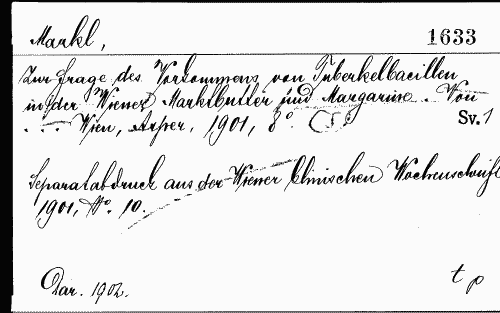 Markl,
1633
Zur Frage des Vorkommens von Tuberkelbacillen
in der Wiener Marktbutter und Margarine. Von
... Wien, 1901, 8°.
Sv. 1
Separatabdruck aus der Wiener klinischen Wochenschrift
1901, No. 10.
Dar. 1902.
t p